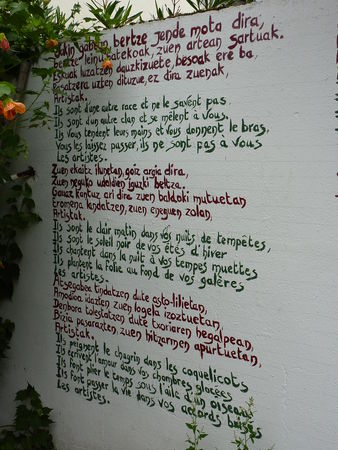 Jakin gabe, bertze jende mota dira,
bertze leinu batekoak, zuen artean sartuak.
Eskuak luzatzen dauzkizuete, besoak ere ba,
Pasatzera uzten dituzue, ez dira zuenak,
Artistak.
Ils sont d'une autre race et ne le savent pas
Ils sont d'un autre clan et se mêlent à vous,
Ils vous tendent leurs mains et vous donnent le bras,
Vous les laissez passer, ils ne sont pas à vous
Les artistes.
Zuen ekaitz ilunetan, goiz argia dira,
Zuen neguko udaldien iguzki beltza.
Gauaz kantuz ari dira zuen baldoki mutuetan
Eromena landatzen, zuen eneguen zolan,
Artistak.
Ils sont le clair matin dans vos nuits de tempêtes,
Ils sont le soleil noir de vos étés d'hiver
Ils chantent dans la nuit à vos tempes muettes
Ils plantent la folie au fond de vos galères
Les artistes.
Atsegabea tindatzen dute asto-lilietan,
Amodioa idazten zuen logela izoztuetan,
Denbora tolestatzen dute txoriaren hegalpean,
Bizia pasarazten, zuen hitzarmen apurtuetan,
Artistak.
Ils peignent le chagrin dans les coquelicots
Ils écrivent l'amour dans vos chambres glacées
Ils font plier le temps sous l'aile d'un oiseau
Ils font passer la vie dans vos accords brisés
Les artistes.